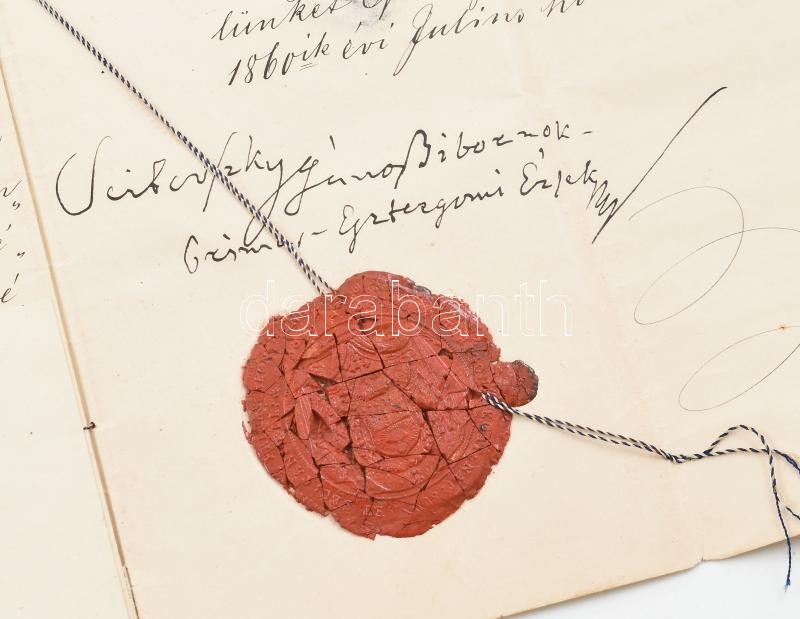 lünket
1860ik évi Julius ho
Scitovszky János Bibornok-
Prímás - Esztergomi Érsek
darabanth
BE